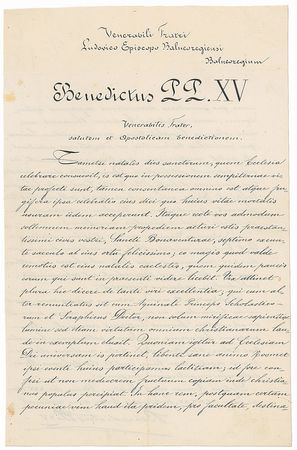 Venerabili Fratri
Ludovico Episcopo Balneoregiensi
Balneoregium
Benedictus PP. XV
Venerabilis Frater,
salutem et Apostolicam benedictionem.
Tametsi natalis dies sanctorum, quem Ecclesia
celebrare consuevit, is est quo in possessionem sempiternae vi-
tae profecti sunt, tamen consentanea omnino est atque fru-
gifera ipsa celebratio eius diei quo huius vitae mortalis
usuram iidem acceperunt. Itaque recte vos admodum
sollemnem memoriam propediem acturi estis praestan-
tissimi civis vestri, Sancti Bonaventurae, septimo exeun-
te saeculo ab eius ortu felicissimo; eo magis quod valde
remotus est eius natalis caelestis, quem quidem, paucis-
corum qui sunt in praesenti videre licebit. Vix attinet
plura hic dicere de tanti viri excellentia, qui cum al-
ter renuntiatus sit cum Aquinate Princeps Scholastico-
rum et Seraphicus Doctor, non solum mirificae sapientiae
lumine sed etiam virtutum omnium christianarum lau-
de in exemplum eluxit. Quoniam igitur ad Ecclesiam
Dei universam is pertinet, libenti sane animo Nosmet
ipsi vestri huius participamus laetitiam; id fore con-
fisi ut non mediocrem fructuum copiam inde christia-
nus populus percipiat. In hanc rem, postquam certam
pecuniae vim haud ita pridem, pro facultate, destina